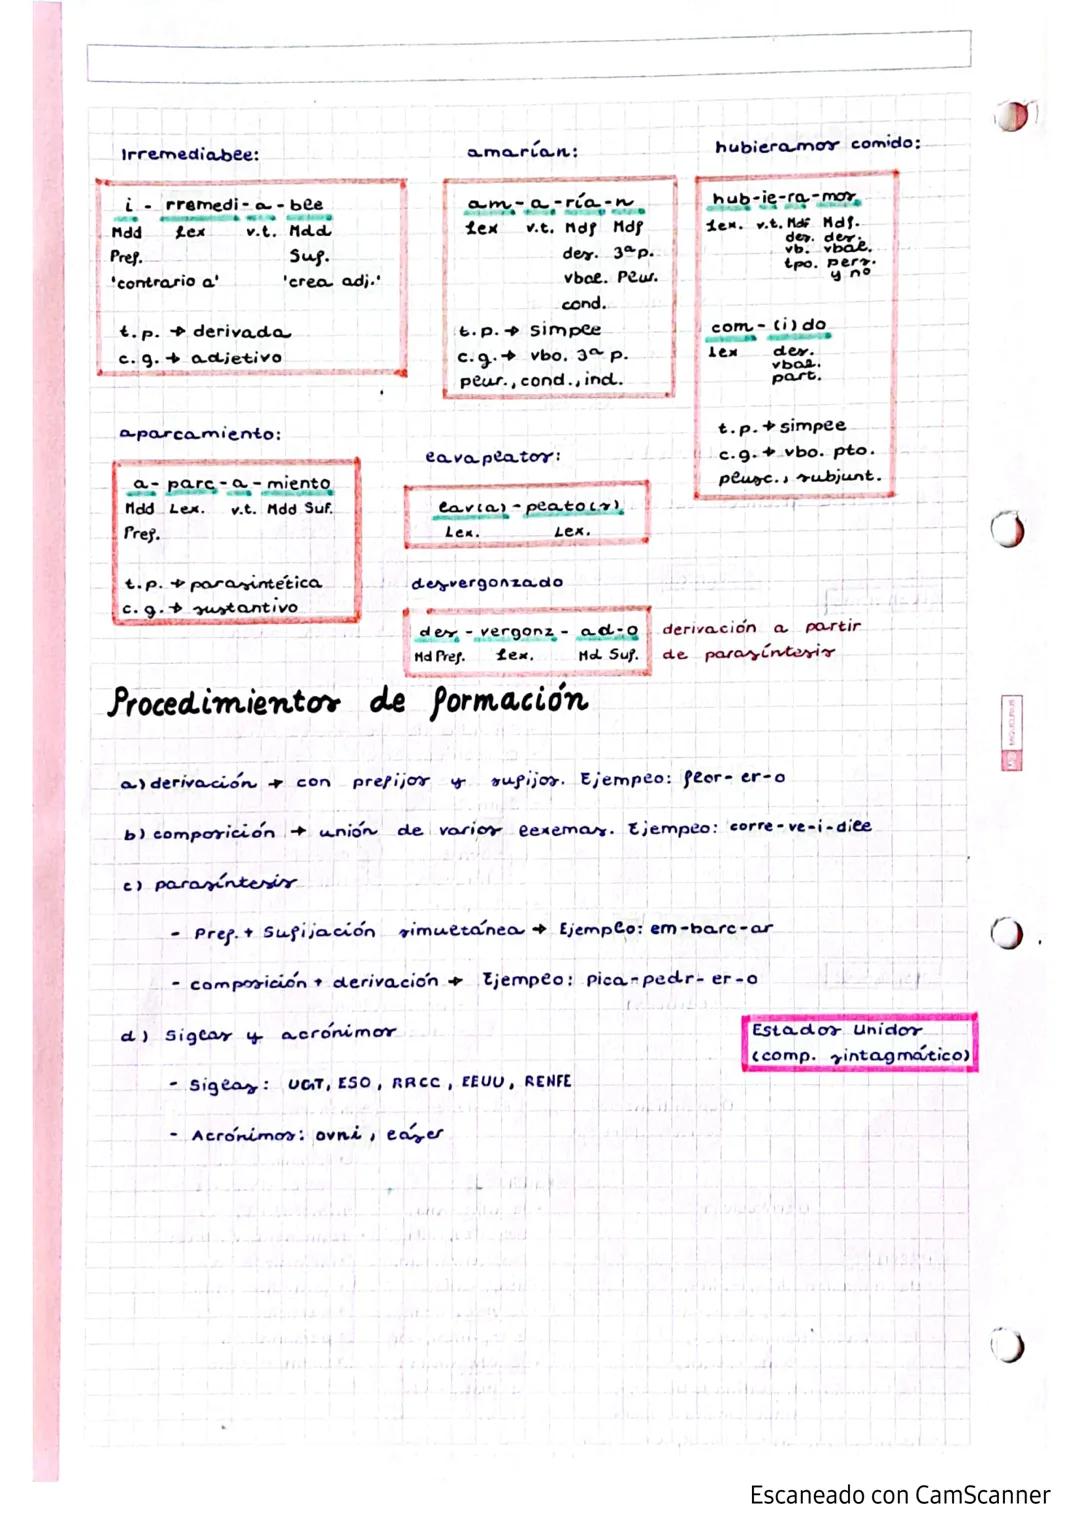 Irremediable:
i - rremedi - a - ble
Mdd Lex v.t. Mdd
Pref. Suf.
'contrario a' 'crea adj.'
t.p. → derivada
c.g. → adjetivo
amarían:
am-a-ría-n
Lex v.t. Mdf Mdf
des. 3ª p.
vbal. Plur.
cond.
t.p. → simple
c.g. → vbo. 3ª p.
plur., cond., ind.
hubieramos comido:
hub-ie-ra-mos
Lex. v.t. Mdf Mdf.
des. des.
vb. vbal.
tpo. pers.
y nº
com - (i) do
Lex des.
vbal.
part.
t.p. → simple
c.g. → vbo. pto.
plusc., subjunt.
aparcamiento:
a - parc - a - miento
Mdd Lex. v.t. Mdd Suf.
Pref.
t.p. → parasintética
c.g. → sustantivo
lavaplatos:
lav(a) - plato(s)
Lex. Lex.
desvergonzado
des - vergonz - ad-o
Md Pref. Lex. Md Suf.
derivación a partir
de parasíntesis
Procedimientos de formación
a) derivación → con prefijos y sufijos. Ejemplo: flor-er-o
b) composición → unión de varios lexemas. Ejemplo: corre-ve-i-dile
c) parasíntesis
- Pref. + Sufijación simultánea → Ejemplo: em-barc-ar
- composición + derivación → Ejemplo: pica-pedr-er-o
d) Siglas y acrónimos
Estados Unidos
(comp. sintagmático)
- Siglas: UGT, ESO, RRCC, EEUU, RENFE
- Acrónimos: ovni, láser
Escaneado con CamScanner